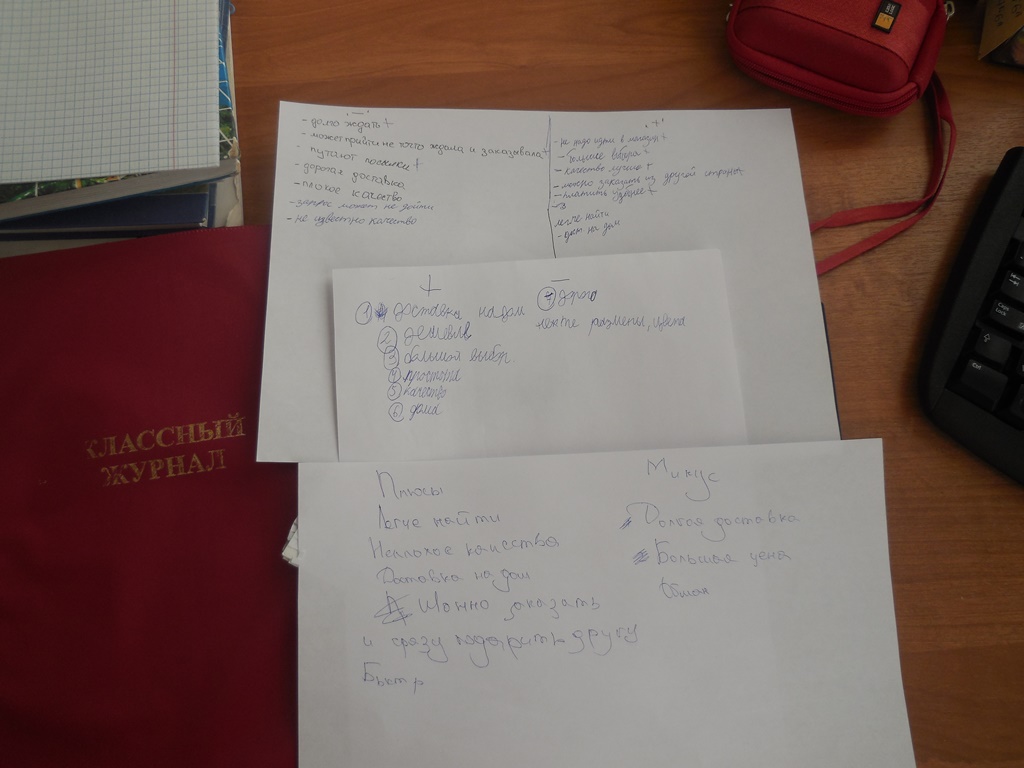 -
- долго ждать +
- может прийти не то что ждала и заказывала +
- путают посылки +
- дорогая доставка
- плохое качество
- заказ может не дойти
- не известно качество
+
- не надо идти в магазин +
- больше выбора
- качество лучше +
- можно заказать из другой страны
- платить удобнее +
легче найти
- дост. на дом
+
① доставка на дом
② дешевле
③ большой выбор
④ простота
⑤ качество
⑥ дома
—
дорого
размеры, цвета
КЛАССНЫЙ
ЖУРНАЛ
Плюсы
Легче найти
Неплохое качества
Доставка на дом
Можно заказать
и сразу подарить другу
Быстр
Минус
Долгая доставка
Большая цена